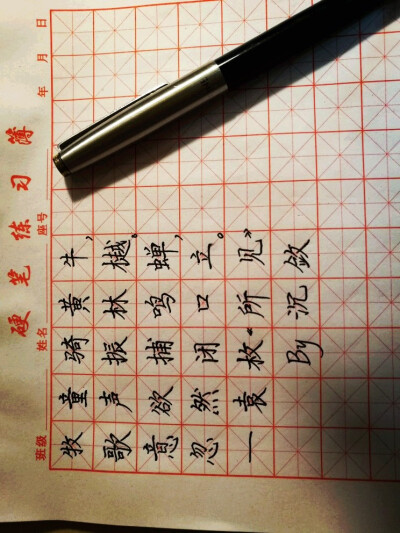 硬笔练习簿
班级 姓名 座号 年 月 日
牧童骑黄牛，
歌声振林樾。
意欲捕鸣蝉，
忽然闭口立。
—袁枚《所见》
By 沉敛